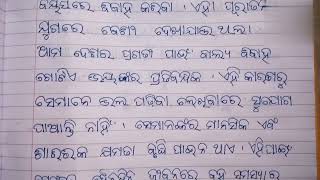 ବୟସରେ ବିବାହ କରିବା । ଏହା ପ୍ରାଚୀନ
ଯୁଗରେ ବେଶୀ ଦେଖାଯାଉ ଥିଲା
ଆମ ଦେଶର ପ୍ରଗତି ପାଇଁ ବାଲ୍ୟ ବିବାହ
ଗୋଟିଏ ଭୟଙ୍କର ପ୍ରତିବନ୍ଧକ । ଏହି କାରଣରୁ
ସେମାନେ ଭଲ ପାଠପଢା ଲେଖିବାରେ ସୁଯୋଗ
ପାଆନ୍ତି ନାହିଁ । ସେମାନଙ୍କର ମାନସିକ ଏବଂ
ଶାରୀରିକ କ୍ଷମତା ବୃଦ୍ଧି ପାଇନ ଥାଏ । ଏହିପାଇଁ
ଜୀବନରେ ବହୁ ସମସ୍ୟାର